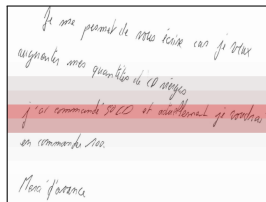 Je me permet de vous écrire car je veux
augmenter mes quantités de CD vierges
j'ai commandé 50 CD et actuellement je voudrai
en commande 100.
Merci d'avance